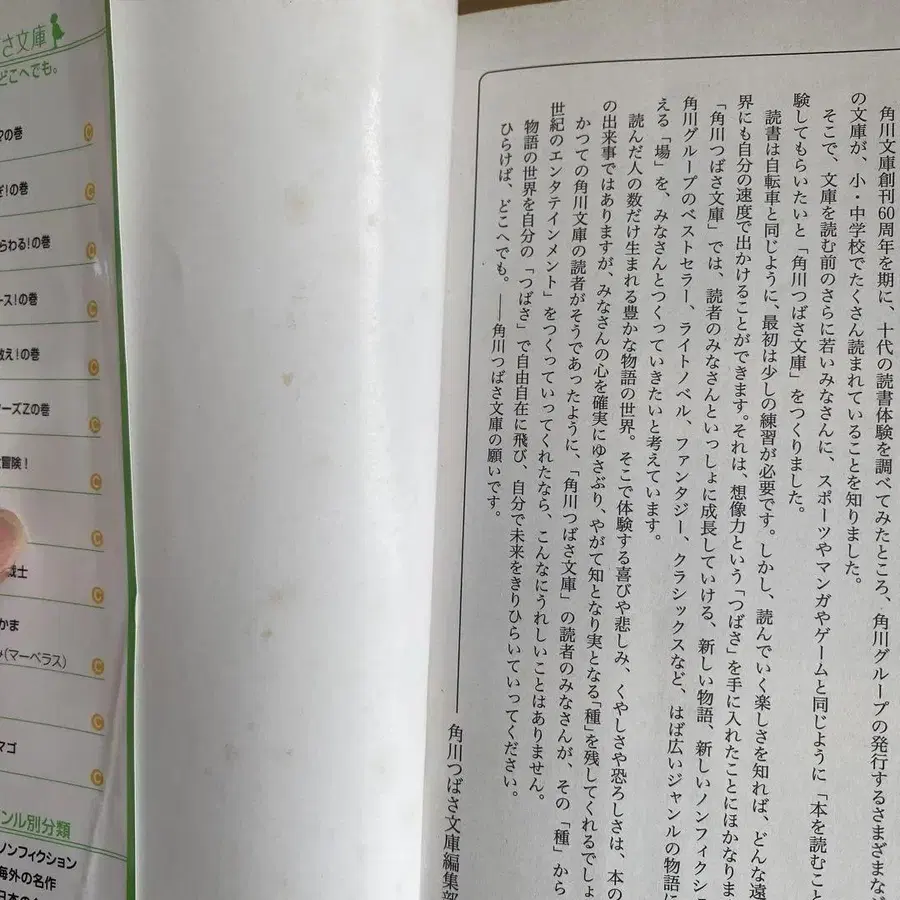 角川文庫創刊60周年を期に、十代の読書体験を調べてみたところ、角川グループの発行するさまざまな
の文庫が、小・中学校でたくさん読まれていることを知りました。
そこで、文庫を読む前のさらに若いみなさんに、スポーツやマンガやゲームと同じように「本を読むこと
験してもらいたいと「角川つばさ文庫」をつくりました。
読書は自転車と同じように、最初は少しの練習が必要です。しかし、読んでいく楽しさを知れば、どんな遠
界にも自分の速度で出かけることができます。それは、想像力という「つばさ」を手に入れたことにほかなりま
「角川つばさ文庫」では、読者のみなさんといっしょに成長していける、新しい物語、新しいノンフィクシ
角川グループのベストセラー、ライトノベル、ファンタジー、クラシックスなど、はば広いジャンルの物語に
える「場」を、みなさんとつくっていきたいと考えています。
読んだ人の数だけ生まれる豊かな物語の世界。そこで体験する喜びや悲しみ、くやしさや恐ろしさは、本の
の出来事ではありますが、みなさんの心を確実にゆさぶり、やがて知となり実となる「種」を残してくれるでしょ
かつての角川文庫の読者がそうであったように、「角川つばさ文庫」の読者のみなさんが、その「種」から
世紀のエンタテインメント」をつくっていってくれたなら、こんなにうれしいことはありません。
物語の世界を自分の「つばさ」で自由自在に飛び、自分で未来をきりひらいていってください。
ひらけば、どこへでも。――角川つばさ文庫の願いです。
角川つばさ文庫編集部
さ文庫
どこへでも。
マの巻
ぎ!の巻
らわる!の巻
ース!の巻
教え!の巻
ターズZの巻
冒険!
戦士
かま
み(マーベラス)
マゴ
ンル別分類
ノンフィクション
海外の名作
日本の